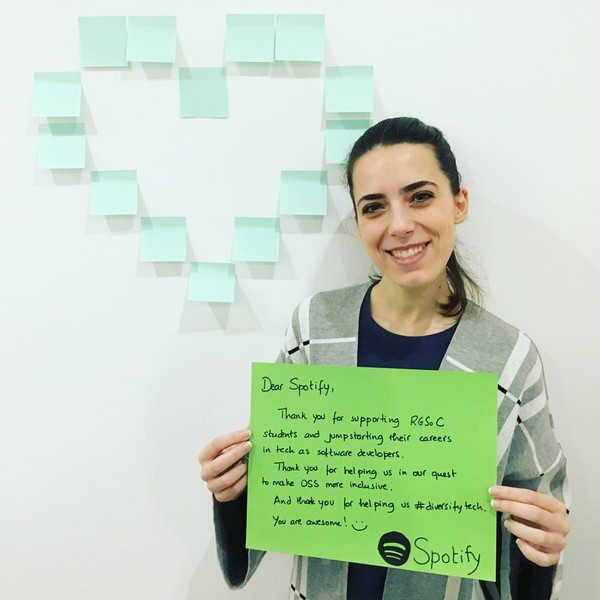 Dear Spotify,
Thank you for supporting RGSoC
students and jumpstarting their careers
in tech as software developers.
Thank you for helping us in our quest
to make OSS more inclusive.
And thank you for helping us #diversifytech.
You are awesome! :)
Spotify